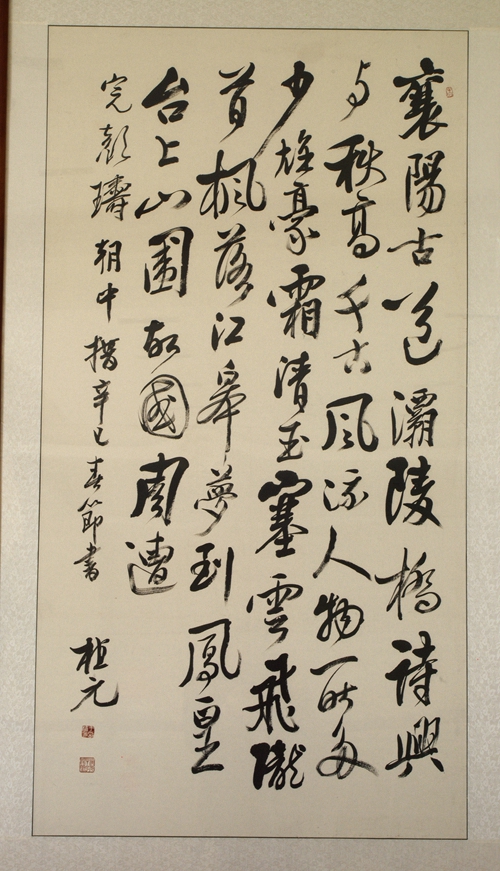 襄陽古道灞陵橋詩興
与秋高千古風流人物一時多
少雄豪霜清玉塞雲飛隴
首楓落江皋夢到鳳皇
台上山圍故國周遭
完顏璹朝中措辛巳春節書
元